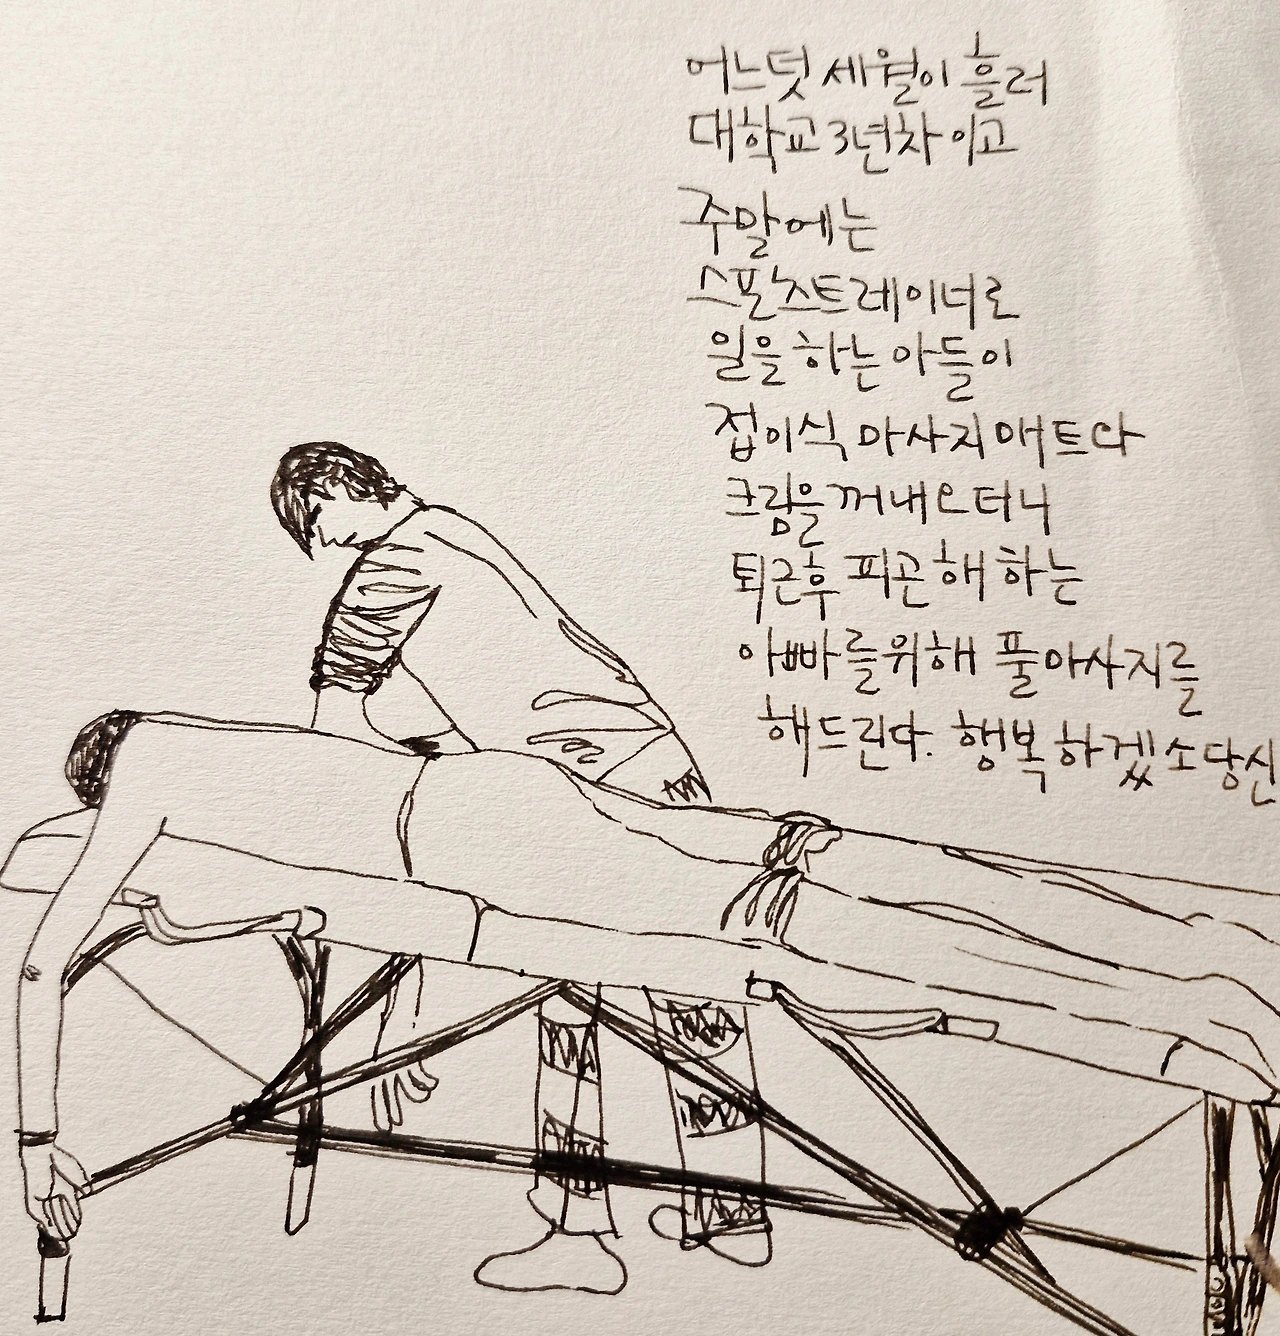 어느덧 세월이 흘러
대학교 3년차이고
주말에는
스포츠트레이너로
일을 하는 아들이
접이식 마사지매트와
크림을 꺼내오더니
퇴근후 피곤해 하는
아빠를위해 풀마사지를
해드린다. 행복하겠소당신